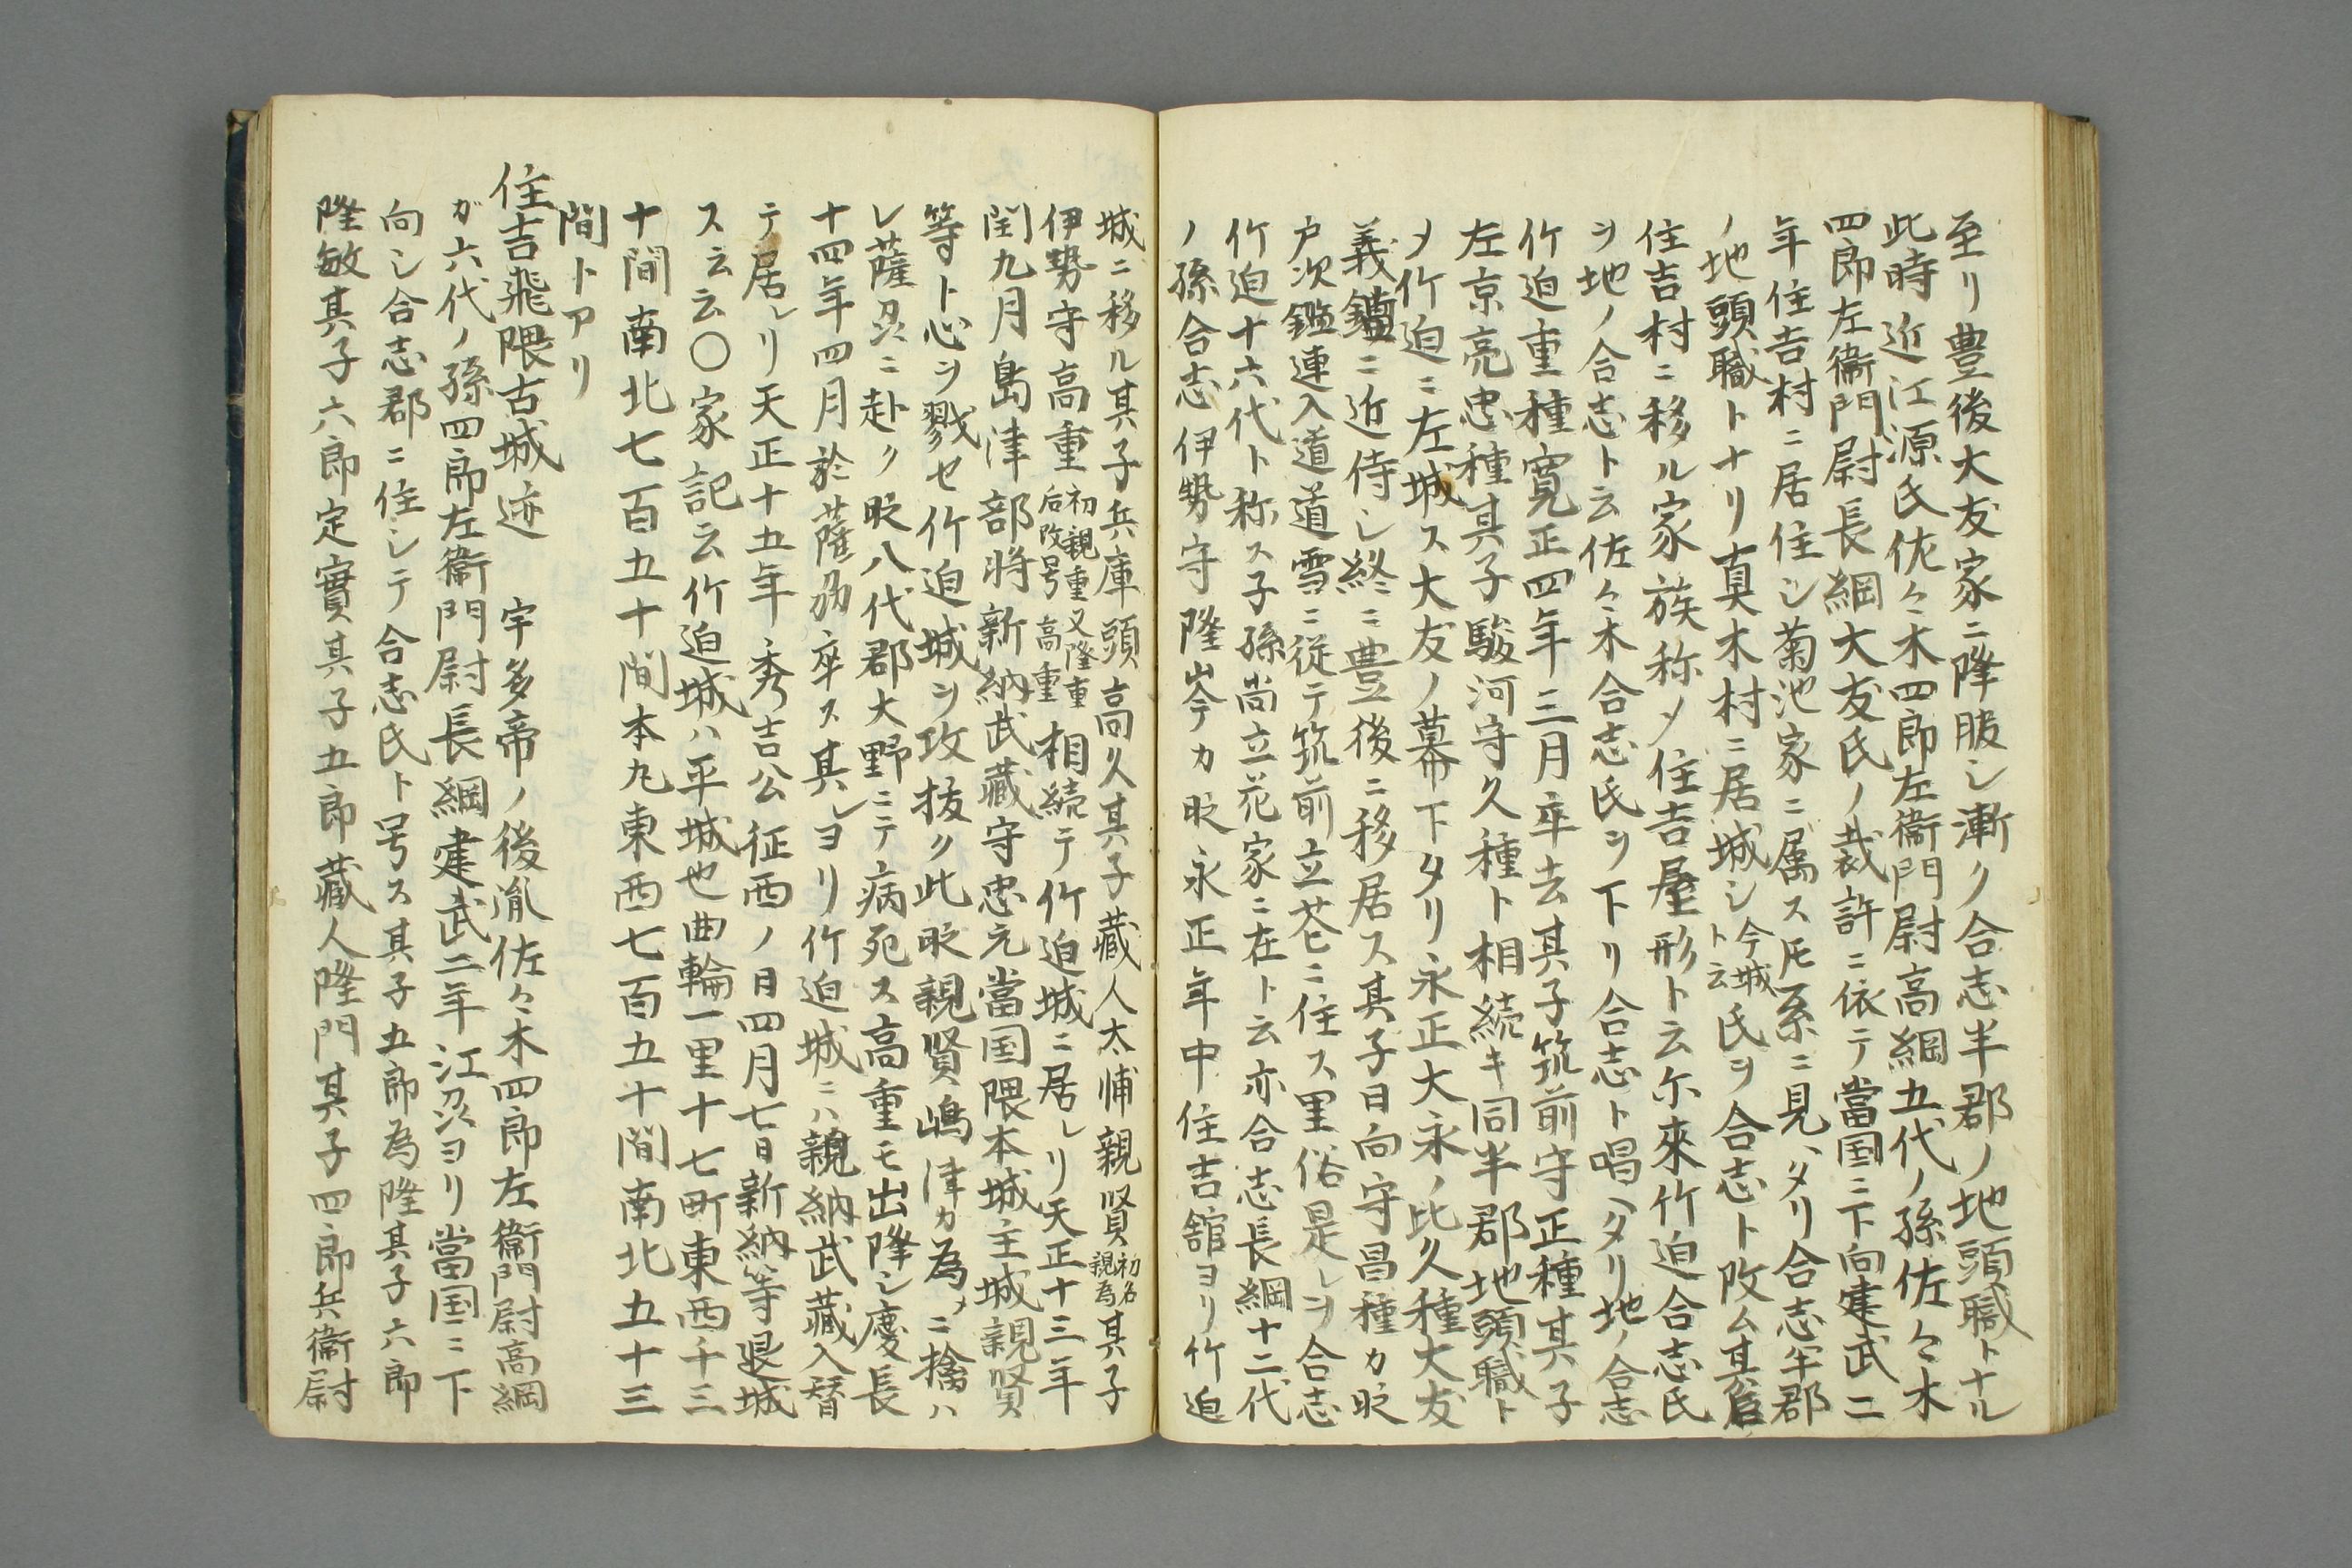 至リ豊後大友家ニ降服シ漸ク合志半郡ノ地頭職トナル
此時近江源氏佐々木四郎左衞門尉高綱五代ノ孫佐々木
四郎左衞門尉長綱大友氏ノ裁許ニ依テ當国ニ下向建武二
年住吉村ニ居住シ菊池家ニ属ス㞮系ニ見ヘタリ合志半郡
ノ地頭職トナリ真木村ニ居城シ今城ト云氏ヲ合志ト改ム其後
住吉村ニ移ル家族称メ住吉屋形ト云尓来竹迫合志氏
ヲ地ノ合志ト云佐々木合志氏ヲ下リ合志ト唱ヘタリ地ノ合志
竹迫重種寛正四年三月卒去其子筑前守正種其子
左京亮忠種其子駿河守久種ト相続キ同半郡地頭職ト
メ竹迫ニ在城ス大友ノ幕下タリ永正大永ノ比久種大友
義鑑ニ近侍シ終ニ豊後ニ移居ス其子日向守昌種カ时
戸次鑑連入道道雪ニ従テ筑前立花ニ住ス里俗是レヲ合志
竹迫十六代ト称ス子孫尚立花家ニ在ト云亦合志長綱十二代
ノ孫合志伊勢守隆岑カ时永正年中住吉舘ヨリ竹迫
城ニ移ル其子兵庫頭高久其子藏人太輔親賢初名親為其子
伊勢守高重初親重又隆重后改号高重相続テ竹迫城ニ居レリ天正十三年
閏九月島津部将新納武藏守忠元當国隈本城主城親賢
等ト心ヲ戮セ竹迫城ヲ攻抜ク此时親賢嶋津カ為メニ擒ハ
レ薩刕ニ赴ク时八代郡大野ニテ病死ス高重モ出降シ慶長
十四年四月於薩刕卒ス其レヨリ竹迫城ニハ親納武藏入替
テ居レリ天正十五年秀吉公征西ノ日四月七日新納等退城
ス云云〇家記云竹迫城ハ平城也曲輪一里十七町東西千三
十間南北七百五十間本丸東西七百五十間南北五十三
間トアリ
住吉飛隈古城迹　宇多帝ノ後胤佐々木四郎左衞門尉高綱
ガ六代ノ孫四郎左衞門尉長綱建武二年江刕ヨリ當国ニ下
向シ合志郡ニ住シテ合志氏ト号ス其子五郎為隆其子六郎
隆敏其子六郎定實其子五郎藏人隆門其子四郎兵衞尉